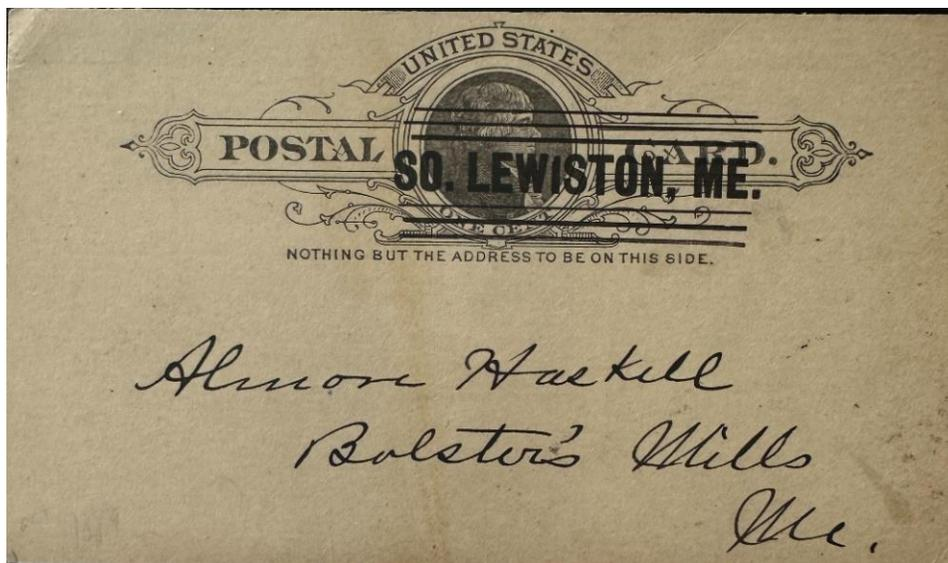 UNITED STATES
POSTAL CARD.
SO. LEWISTON, ME.
ONE CENT
NOTHING BUT THE ADDRESS TO BE ON THIS SIDE.
Almon Haskell
Bolster's Mills
Me.